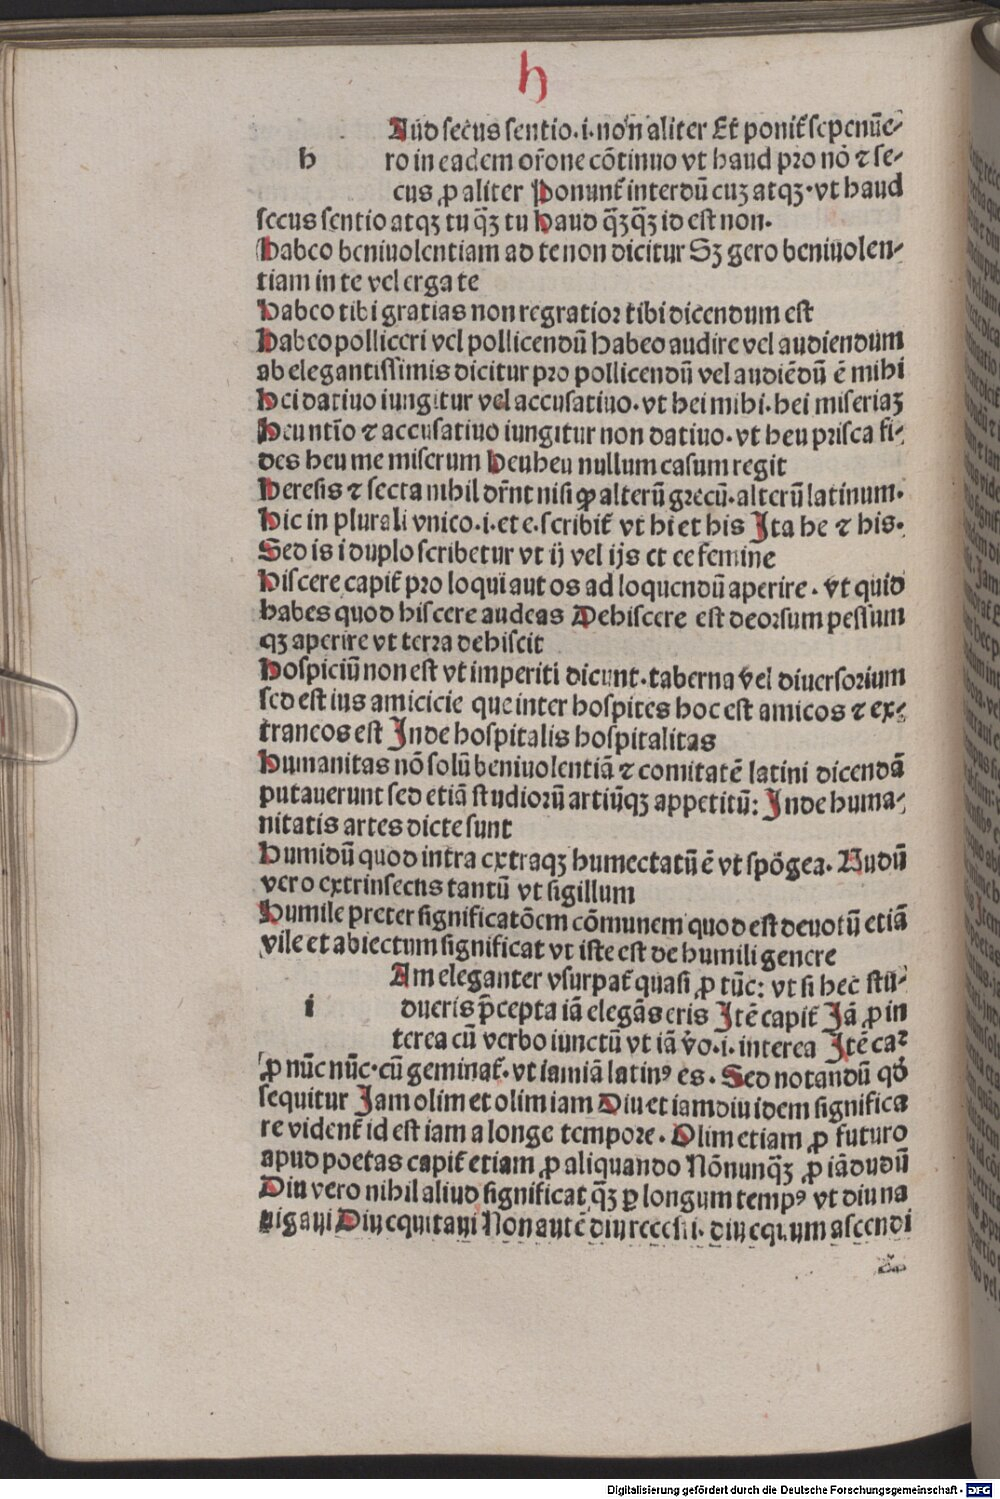 h
Aud secus sentio. i. non aliter Et ponit̃ sepenũe-
h
ro in eadem or̃one cõtinuo vt haud pro nõ ⁊ se-
cus ꝓ aliter Ponunt̃ interdũ cuꝫ atqꝫ. vt haud
secus sentio atqꝫ tu q̃ꝫ tu haud q̃ꝫq̃ꝫ id est non.
Habeo beniuolentiam ad te non dicitur Sꝫ gero beniuolen-
tiam in te vel erga te
Habeo tibi gratias non regratior tibi dicendum est
Habeo polliceri vel pollicendũ habeo audire vel audiendum
ab elegantissimis dicitur pro pollicendũ vel audiẽdũ ẽ mihi
Hei datiuo iungitur vel accusatiuo. vt hei mihi. hei miseriaꝫ
Heu ntĩo ⁊ accusatiuo iungitur non datiuo. vt heu prisca fi-
des heu me miserum heuheu nullum casum regit
Heresis ⁊ secta nihil dr̃nt nisi ꝙ alterũ grecũ. alterũ latinum.
Hic in plurali vnico. i. et e. scribit̃ vt hi et his Ita he ⁊ his.
Sed is i duplo scribetur vt ij vel ijs et ee femine
Hiscere capit̃ pro loqui aut os ad loquendũ aperire. vt quid
habes quod hiscere audeas Dehiscere est deorsum pessum
qꝫ aperire vt terra dehiscit
Hospiciũ non est vt imperiti dicunt. taberna vel diuersorium
sed est ius amicicie que inter hospites hoc est amicos ⁊ ex-
traneos est Inde hospitalis hospitalitas
Humanitas nõ solũ beniuolentiã ⁊ comitatẽ latini dicendã
putauerunt sed etiã studiorũ artiũqꝫ appetitũ: Inde huma-
nitatis artes dicte sunt
Humidũ quod intra extraqꝫ humectatũ ẽ vt spõgea. Uudũ
vero extrinsecus tantũ vt sigillum
Humile preter significatõem cõmunem quod est deuotũ etiã
vile et abiectum significat vt iste est de humili genere
Am eleganter vsurpat̃ quasi ꝓ tũc: vt si hec stu-
i
dueris p̃cepta iã elegãs eris Itẽ capit̃ Iã ꝓ in
terea cũ verbo iunctũ vt iã v̊o. i. interea Itẽ caꝛ
ꝓ nũc nũc. cũ geminat̃. vt iamiã latinꝰ es. Sed notandũ qd̊
sequitur Iam olim et olim iam Diu et iamdiu idem significa
re vident̃ id est iam a longe tempore. Olim etiam ꝓ futuro
apud poetas capit̃ etiam ꝓ aliquando Nõnunq̃ꝫ ꝓ iãdudũ
Diu vero nihil aliud significat q̃ꝫ ꝑ longum tempꝰ vt diu na
uigaui Diu equitaui Non autẽ diu recessi. diu equum ascendi
Digitalisierung gefördert durch die Deutsche Forschungsgemeinschaft - DFG